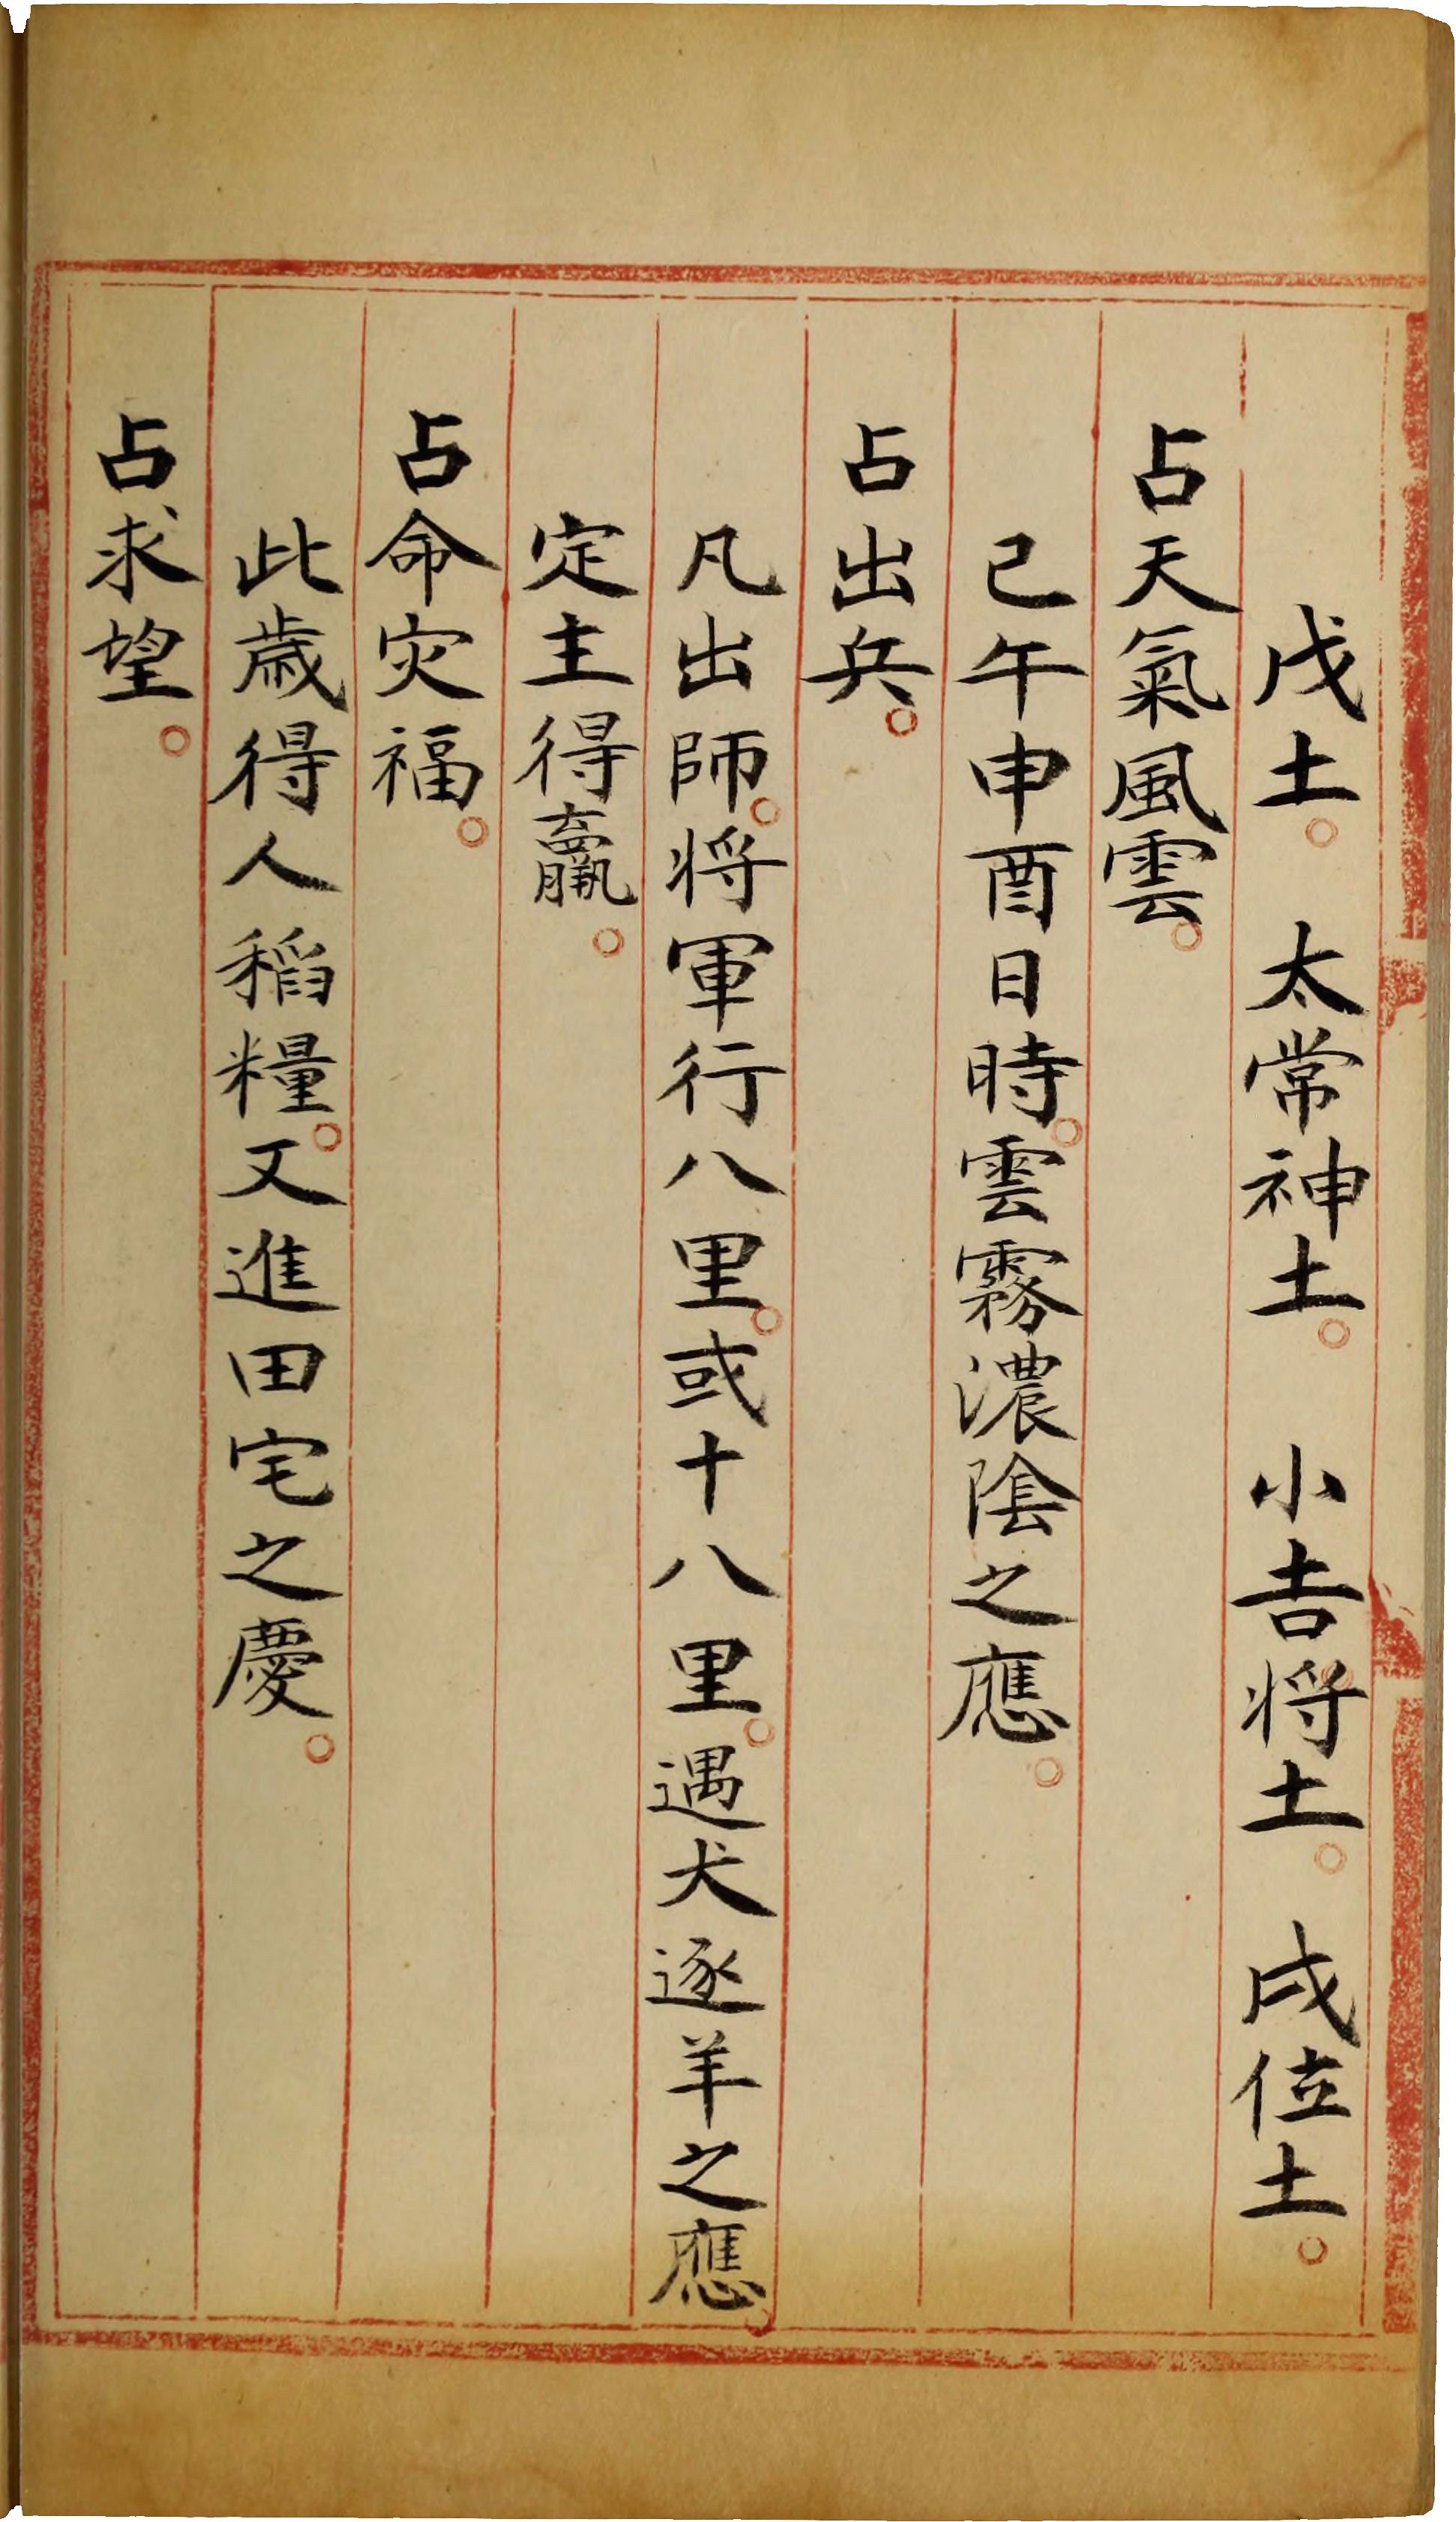 戊土。太常神土。小吉将土。戌位土。
占天氣風雲。
已午申酉日時。雲霧濃陰之應。
占出兵。
凡出師。将軍行八里。或十八里。遇犬逐羊之應。
定主得贏。
占命灾福。
此歳得人稻糧。又進田宅之慶。
占求望。